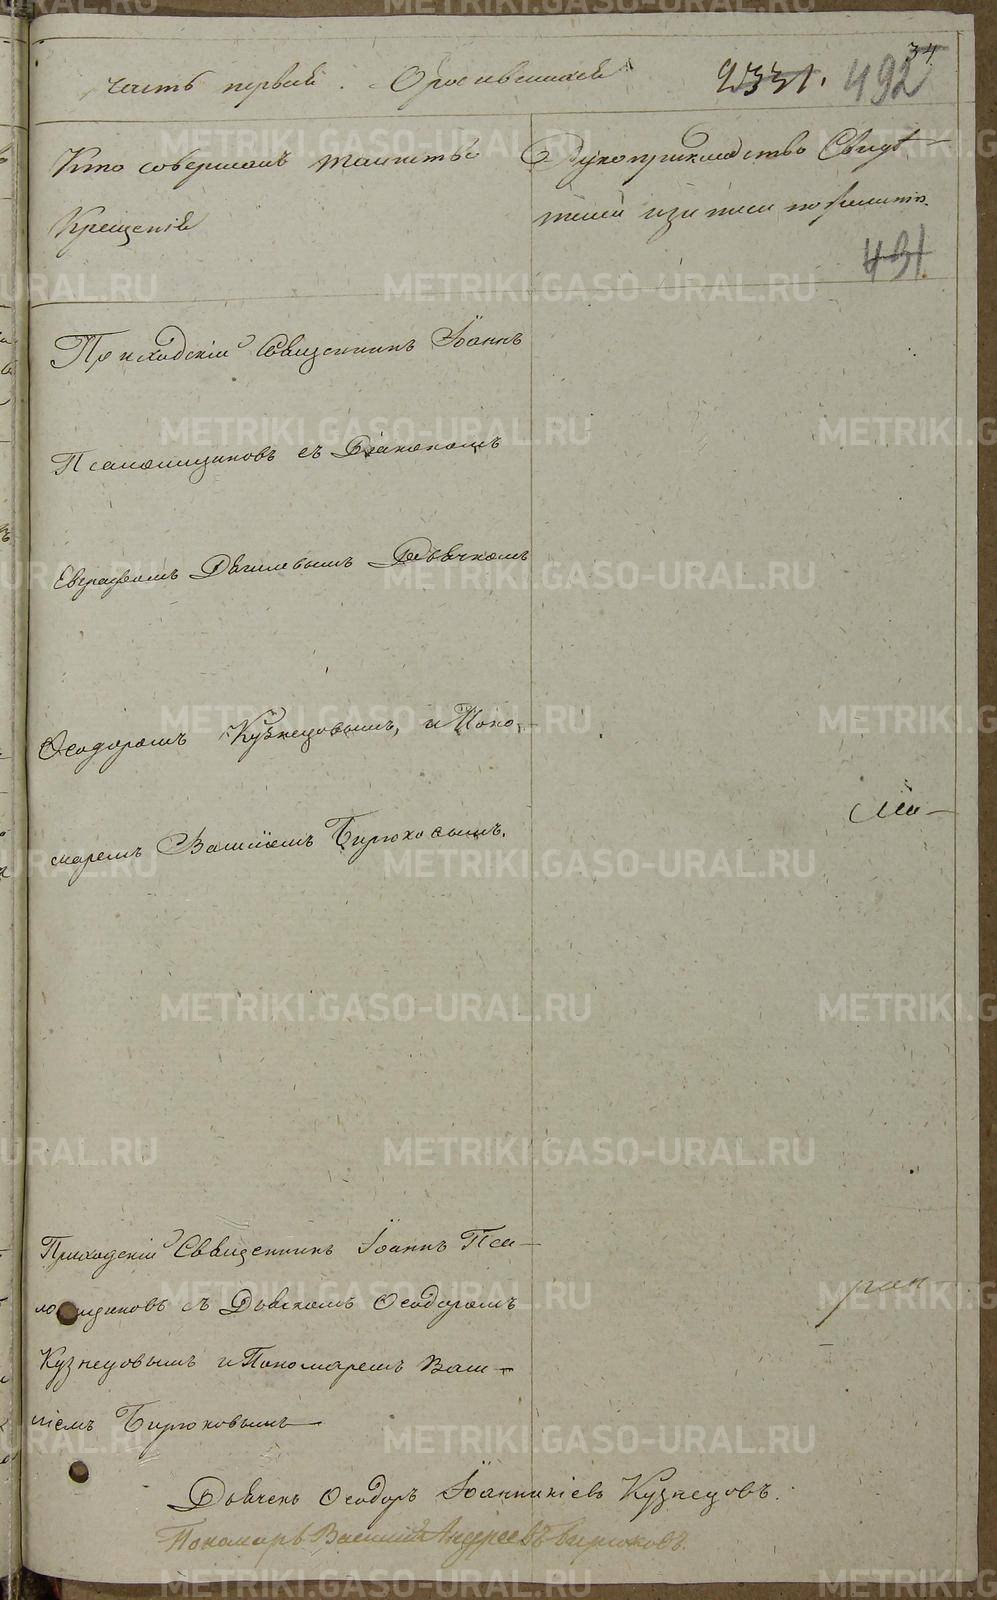 34
Часть первая. О родившихся 2331. 492
Кто совершалъ таинство
Крещенія
Рукоприкладство Свидѣ-
телей записи по желанію.
491
Приходскій Священникъ Іоаннъ
Псаломщиковъ съ Діакономъ
Дьячкомъ
Ѳеодоромъ Кузнецовымъ, и Поно-
маремъ Василіемъ Бирюковымъ.
Приходскій Священникъ Іоаннъ Пса-
ломщиковъ съ Дьячкомъ Ѳеодоромъ
Кузнецовымъ и Пономаремъ Васи-
ліемъ Бирюковымъ
Дьячекъ Ѳеодоръ Іоанникіевъ Кузнецовъ.
Пономарь Василий Андреевъ Бирюковъ.
METRIKI.GASO-URAL.RU